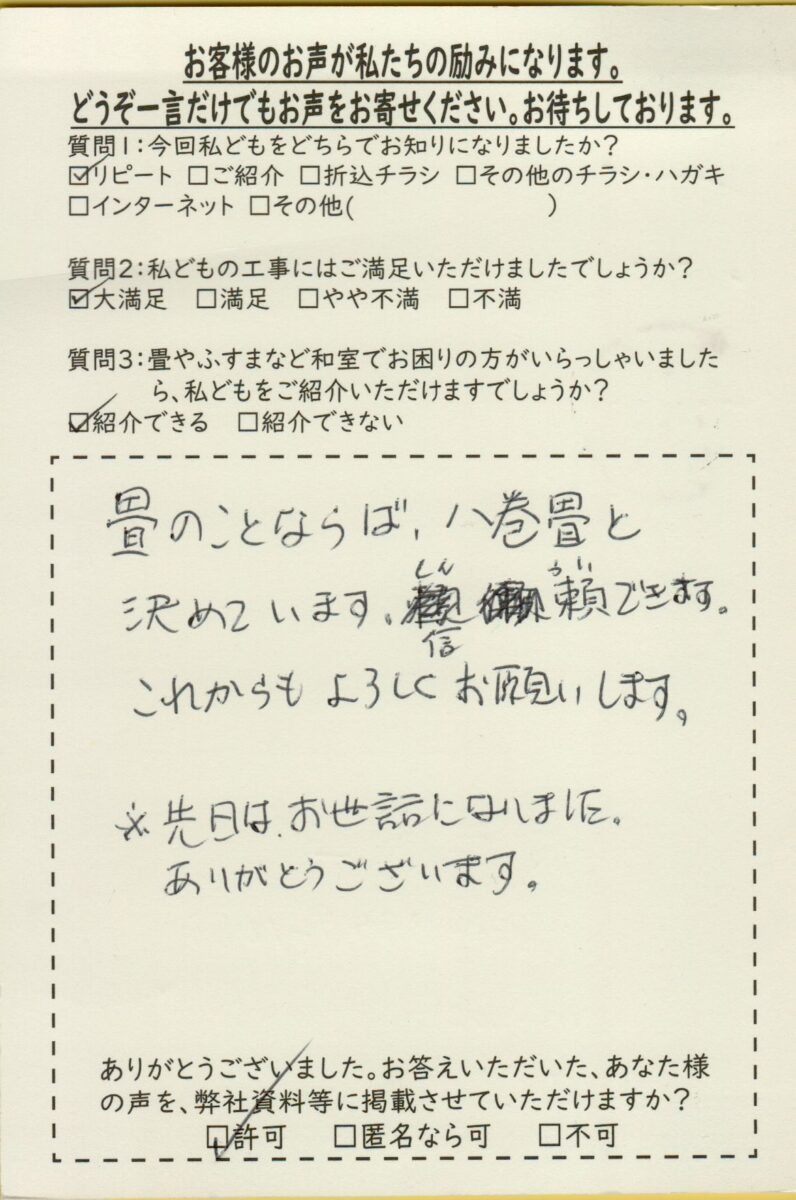 お客様のお声が私たちの励みになります。
どうぞ一言だけでもお声をお寄せください。お待ちしております。
質問1:今回私どもをどちらでお知りになりましたか?
☑リピート □ご紹介 □折込チラシ □その他のチラシ・ハガキ
□インターネット □その他( )
質問2:私どもの工事にはご満足いただけましたでしょうか?
☑大満足 □満足 □やや不満 □不満
質問3:畳やふすまなど和室でお困りの方がいらっしゃいました
ら、私どもをご紹介いただけますでしょうか?
☑紹介できる □紹介できない
畳のことならば、八巻畳と
しん らい
決めています。信頼できます。
これからもよろしくお願いします。
※先日は、お世話になりました。
ありがとうございます。
ありがとうございました。お答えいただいた、あなた様
の声を、弊社資料等に掲載させていただけますか?
☑許可 □匿名なら可 □不可